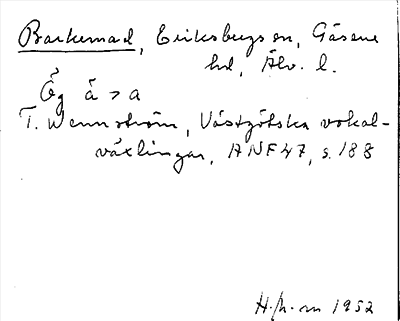 Barkemad, Eriksbergs sn, Gäsene
hd, Älv. l.
Äg á > a
T. Wennström, Västgötska vokal-
växlingar, ANF 47, s. 188
H.h-m 1952